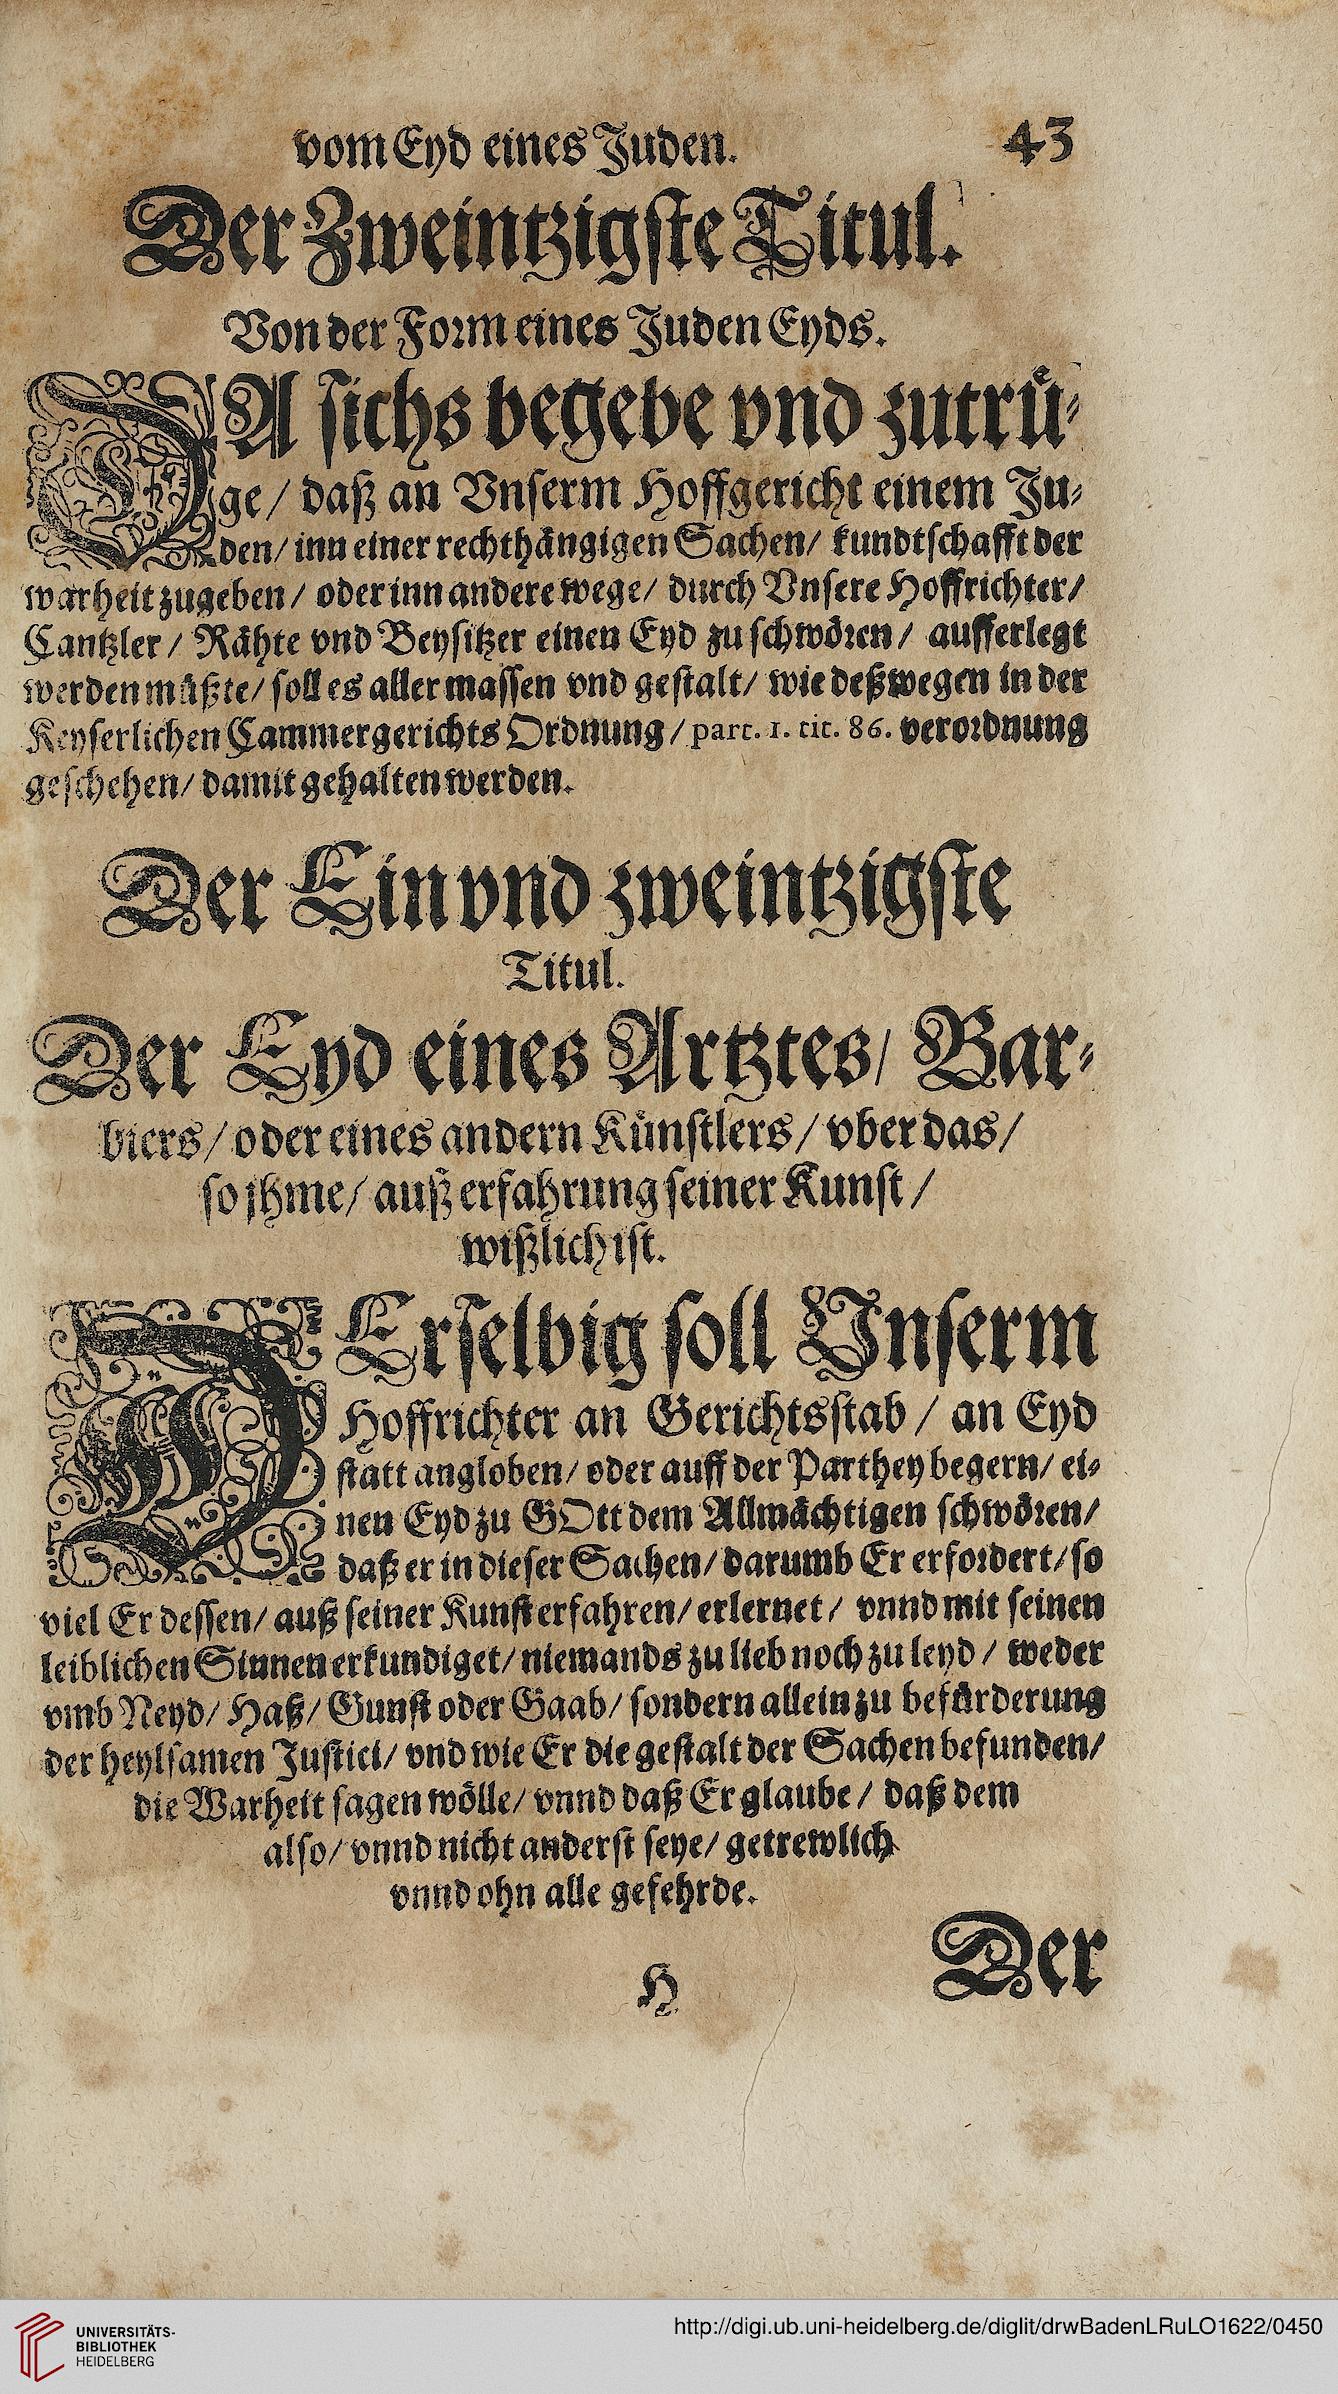 vom Eyd eines Juden. 43
Der Zweintzigste Titul.
Von der Form eines Juden Eyds.
DA sichs begebe vnd zutrüͤ-
ge / daß an Vnserm Hoffgericht einem Ju-
den / inn einer rechthängigen Sachen / kundtschafft der
warheit zugeben / oder inn andere wege / durch Vnsere Hoffrichter /
Cantzler / Rähte vnd Beysitzer einen Eyd zu schwören / aufferlegt
werden müßte / soll es aller massen vnd gestalt / wie deßwegen in der
Keyserlichen Cammergerichts Ordnung / part. 1. tit. 86. verordnung
geschehen / damit gehalten werden.
Der Ein vnd zweintzigste
Titul.
Der Eyd eines Artztes / Bar-
biers / oder eines andern Künstlers / vber das /
so jhme / auß erfahrung seiner Kunst /
wißlich ist.
DErselbig soll Vnserm
Hoffrichter an Gerichtsstab / an Eyd
statt angloben / oder auff der Parthey begern / ei-
nen Eyd zu GOtt dem Allmächtigen schwören /
daß er in dieser Sachen / darumb Er erfordert / so
viel Er dessen / auß seiner Kunst erfahren / erlernet / vnnd mit seinen
leiblichen Sinnen erkundiget / niemands zu lieb noch zu leyd / weder
vmb Neyd / Haß / Gunst oder Gaab / sondern allein zu befürderung
der heylsamen Justici / vnd wie Er die gestalt der Sachen befunden /
die Warheit sagen wölle / vnnd daß Er glaube / daß dem
also / vnnd nicht anderst seye / getrewlich
vnnd ohn alle gefehrde.
H Der
UNIVERSITÄTS-
BIBLIOTHEK
HEIDELBERG
http://digi.ub.uni-heidelberg.de/diglit/drwBadenLRuLO1622/0450